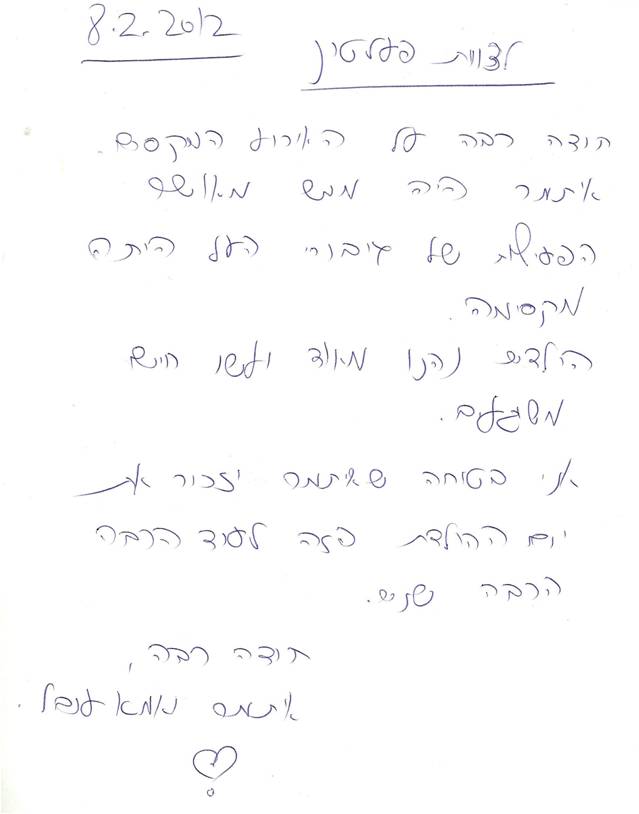 8.2.2012
לצוות פעלטון
תודה רבה על האירוע המקסים.
איתמר היה ממש מאושר
הפעילות של גיבורי העל היתה
מקסימה.
הילדים נהנו מאוד ועשו חיים
משוגעים.
אני בטוחה שאיתמר יזכור את
יום ההולדת הזה לעוד הרבה
הרבה שנים.
תודה רבה,
איתמר ואמא ענבל.